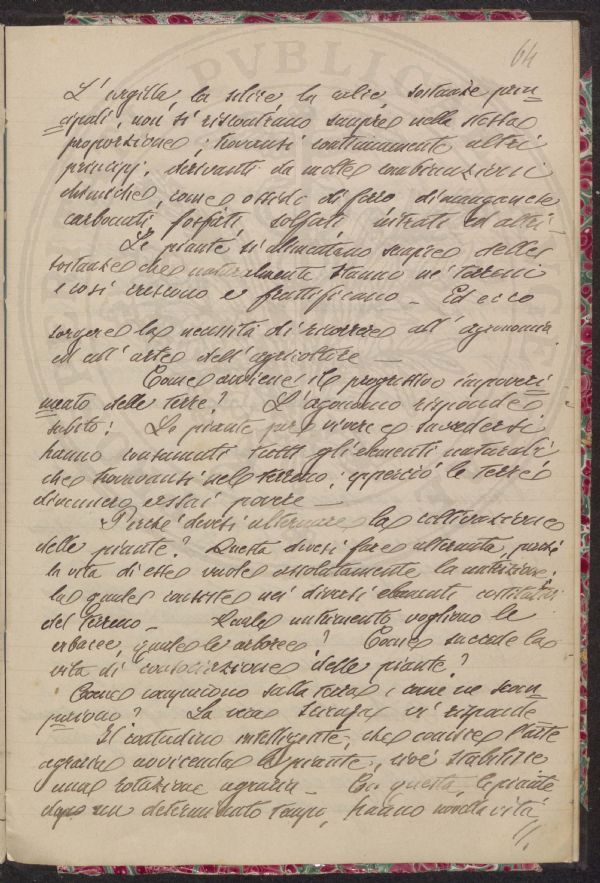 64
L'argilla, la silice la calce, sostanze prin
cipali, non si riscontrano sempre nella stessa
proporzione; trovansi continuamente altri
principj, derivanti da molte combinazioni
chimiche, come ossido di ferro di manganese
carbonati, fosfati, solfati nitrati ed altri.
Le piante si alimentano sempre delle
sostanze che naturalmente stanno ne' terreni
e così crescono e fruttificano — Ed ecco
sorgere la necessità di ricorrere all'agronomia
ed all'arte dell'agricoltore —
Come avviene il progressivo impoveri
mento delle terre? L'agronomo risponde
subito: Le piante per vivere e
hanno consumati tutti gli elementi naturali
che trovavansi nel terreno; epperciò le terre
divennero assai povere —
Perché devesi alternare la coltivazione
delle piante? Questa devesi fare alternata, perché
la vita di esse vuole assolutamente la nutrizione,
la quale consiste nei diversi elementi costitutivi
del terreno — Quale nutrimento vogliono le
erbacee, quale le arboree? Come succede la
vita di consociazione delle piante?
Come compaiono sulla terra e come ne scom
pariono? La vera scienza vi risponde
Il contadino intelligente, che conosce l'arte
agraria avvicenda le piante, cioè stabilisce
una rotazione agraria — Con questa, le piante
dopo un determinato tempo, hanno